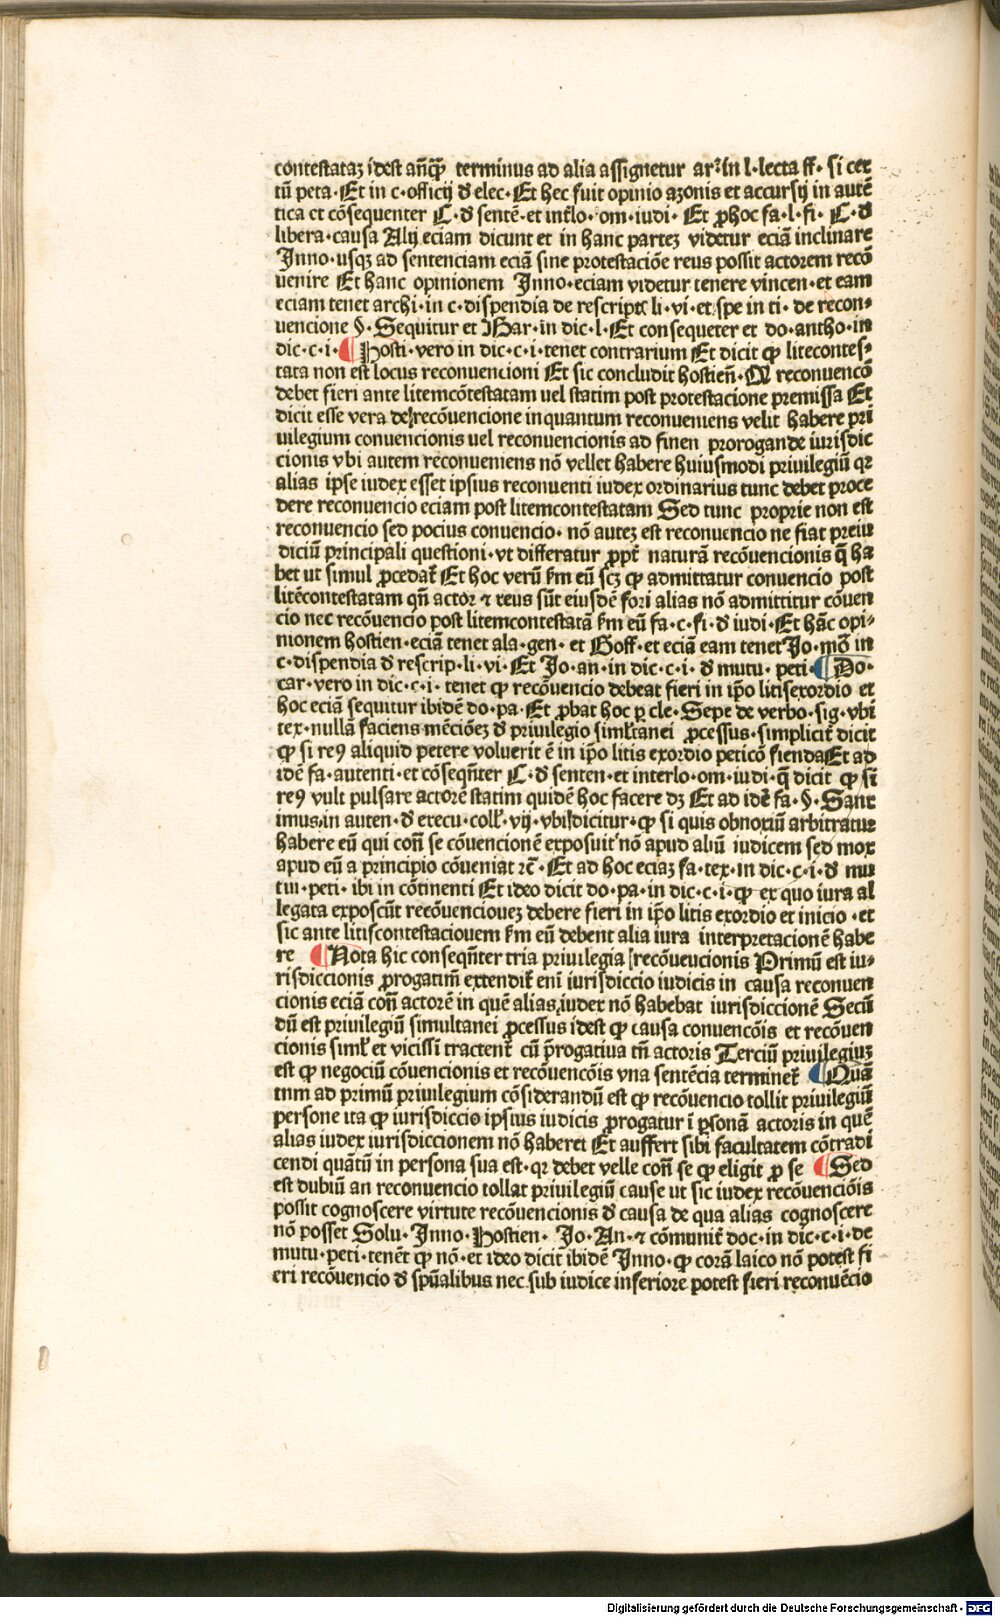 contestataꝫ idest an̄ꝙ̄ terminus ad alia assignetur ar. in l·lecta ff· si cer
tū peta·Et in c·officij ꝺ elec·Et hec fuit opinio azonis et accursij in autē
tica et cōsequenter C·ꝺ sentē·et int̄lo·om·iudi· Et ꝓhoc fa·l·fi· C·ꝺ
libera·causa Alij eciam dicunt et in hanc parteꝫ videtur eciā inclinare
Inno·usqꝫ ad sentenciam eciā sine protestaciōe reus possit actorem recō
uenire Et hanc opinionem Inno·eciam videtur tenere vincen·et eam
eciam tenet archi·in c·dispendia de rescript᷒ li·vi·et spe in ti· de recon⸗
uencione §·Sequitur et Bar·in dic·l·Et consequeter et do·antho·in
dic·c·i· ¶ Hosti·vero in dic·c·i·tenet contrarium Et dicit ꝙ litecontes⸗
tata non est locus reconuencioni Et sic concludit hostien̄·Q reconuencō
debet fieri ante litemcōtestatam uel statim post protestacione premissa Et
dicit esse vera de recōuencione inquantum reconueniens velit habere pri
uilegium conuencionis uel reconuencionis ad finen prorogande iurisdic
cionis vbi autem reconueniens nō vellet habere huiusmodi priuilegiū qꝛ
alias ipse iudex esset ipsius reconuenti iudex ordinarius tunc debet proce
dere reconuencio eciam post litemcontestatam Sed tunc proprie non est
reconuencio sed pocius conuencio· nō auteꝫ est reconuencio ne fiat preiu
diciū principali questioni·vt differatur ꝓpt̄ naturā recōuencionis q̄ ha
bet ut simul ꝓcedat᷒ Et hoc verū ẜm eū scꝫ ꝙ admittatur conuencio post
litēcontestatam qn̄ actor ⁊ reus sūt eiusdē fori alias nō admittitur cōuen
cio nec recōuencio post litemcontestatā ẜm eū fa·c·fi·ꝺ iudi·Et hāc opi⸗
nionem hostien·eciā tenet ala·gen· et Goff·et eciā eam tenet Jo·mō in
c·dispendia ꝺ rescrip·li·vi· Et Jo·an·in dic·c·i· ꝺ mutu· peti· ¶ Do·
car·vero in dic·c·i· tenet ꝙ recōuencio debeat fieri in ip̄o litisexordio et
hoc eciā sequitur ibidē do·pa·Et ꝓbat hoc ꝑ cle·Sepe de verbo·sig·vbi
tex·nullā faciens mēciōeꝫ ꝺ priuilegio siml̄tanei ꝓcessus·simplicit᷒ dicit
ꝙ si reꝰ aliquid petere voluerit ē in ip̄o litis exordio peticō fienda Et ad
idē fa·autenti·et cōseqn̄ter C·ꝺ senten·et interlo·om·iudi·q̄ dicit ꝙ si
reꝰ vult pulsare actorē statim quidē hoc facere dꝫ Et ad idē fa·§·Sanc
imus·in auten·ꝺ execu·coll᷒·vij·vbi dicitur·ꝙ si quis obnoxiū arbitratur
habere eū qui con̄ se cōuencionē exposuit nō apud aliū iudicem sed mox
apud eū a principio cōueniat ⁊c̄·Et ad hoc eciaꝫ fa·tex·in dic·c·i·ꝺ mu
tui·peti· ibi in cōtinenti Et ideo dicit do·pa·in dic·c·i·ꝙ ex quo iura al
legata exposcūt recōuencioueꝫ debere fieri in ip̄o litis exordio et inicio ·et
sic ante litiscontestaciouem ẜm eū debent alia iura interpretacionē habe
re ¶ Nota hic conseqn̄ter tria priuilegia recōueucionis Primū est iu⸗
risdiccionis ꝓrogatīm extendit᷒ eni iurisdiccio iudicis in causa reconuen
cionis eciā con̄ actorē in quē alias iudex nō habebat iurisdiccionē Secū
dū est priuilegiū simultanei ꝓcessus idest ꝙ causa conuencōis et recōuen
cionis siml᷒ et vicissī tractent᷒ cū p̄rogatiua tn̄ actoris Terciū priuilegiuꝫ
est ꝙ negociū cōuencionis et recōuencōis vna sentēcia terminet᷒ ¶ Quā
tnm ad primū priuilegium cōsiderandū est ꝙ recōuencio tollit priuilegiū
persone ita ꝙ iurisdiccio ipsius iudicis ꝓrogatur ī ꝑsonā actoris in quē
alias iudex iurisdiccionem nō haberet Et auffert sibi facultatem cōtradi
cendi quātū in persona sua est·qꝛ debet velle con̄ se ꝙ eligit ꝓ se ¶ Sed
est dubiū an reconuencio tollat priuilegiū cause ut sic iudex recōuenciōis
possit cognoscere virtute recōuencionis ꝺ causa de qua alias cognoscere
nō posset Solu·Inno·Hostien· Jo·An·⁊ cōmunit᷒ doc·in dic·c·i·de
mutu·peti·tenēt ꝙ nō·et ideo dicit ibidē Inno·ꝙ corā laico nō potest fi
eri recōuencio ꝺ spūalibus nec sub iudice inferiore potest fieri reconuēcio
Digitalisierung gefördert durch die Deutsche Forschungsgemeinschaft - DFG